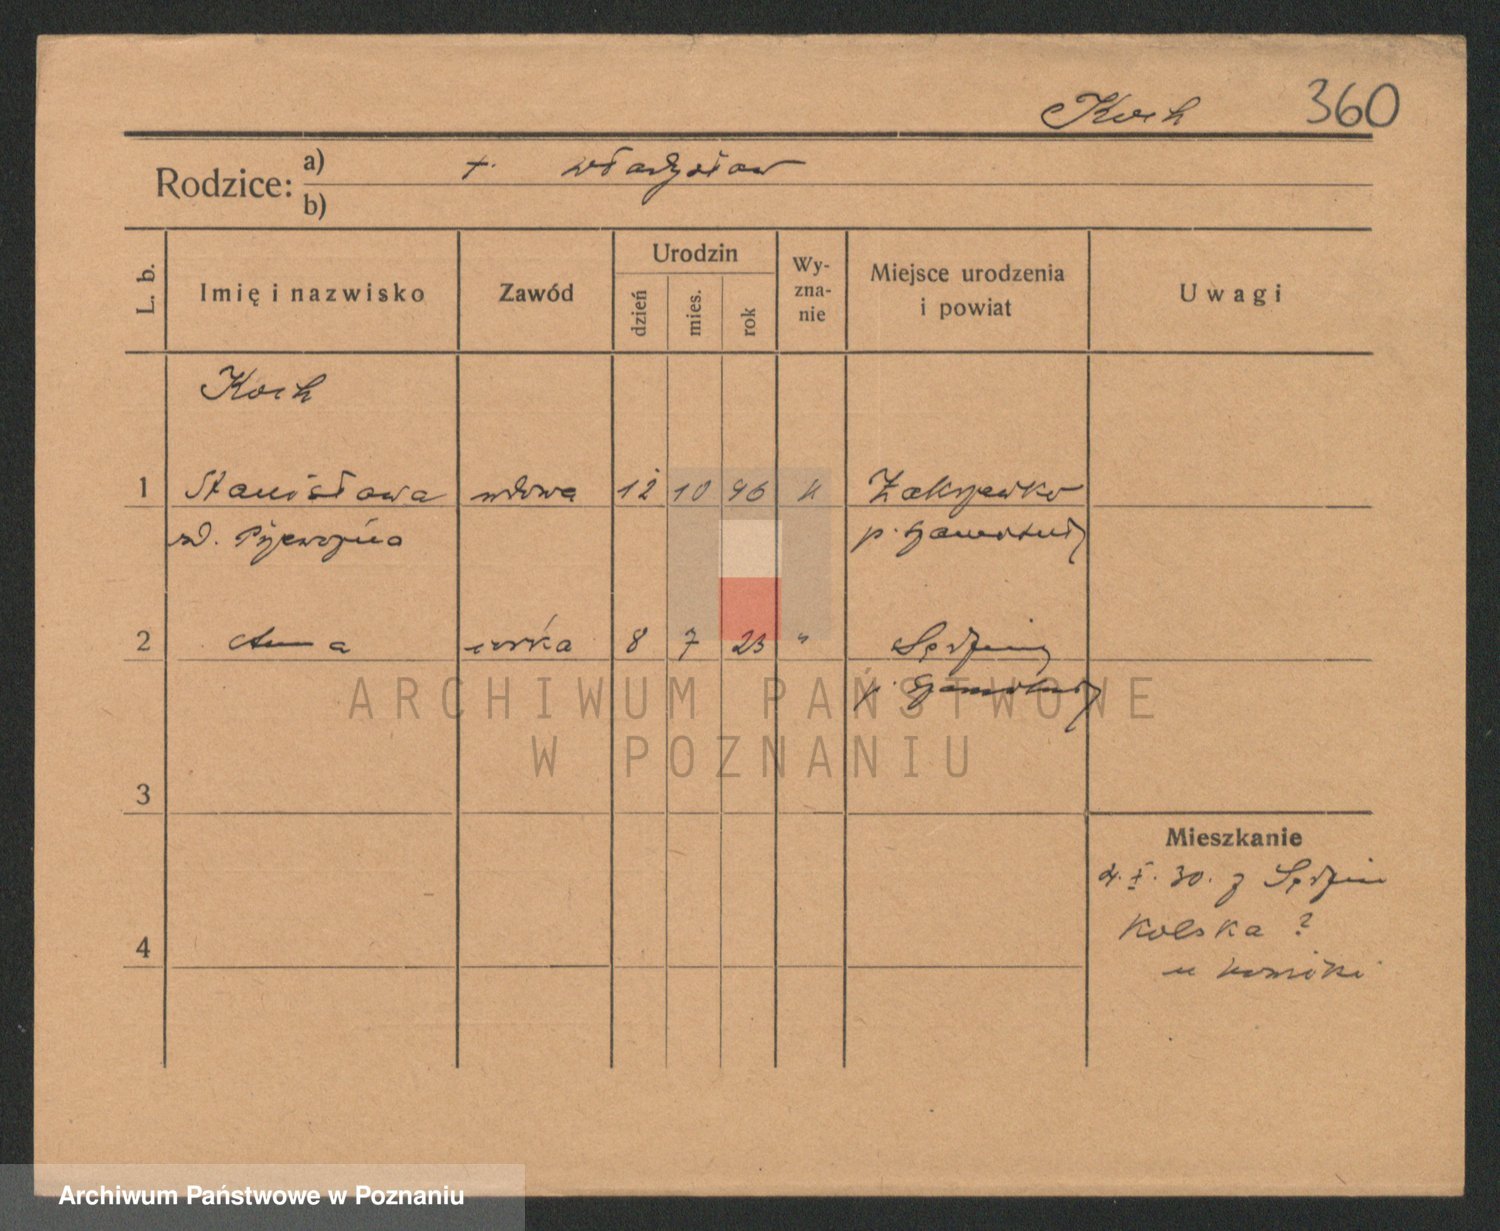 Koch 360
Rodzice:
a) +. Władysław
b)
L. b.
Imię i nazwisko
Zawód
Urodzin
dzień
mies.
rok
Wy-
zna-
nie
Miejsce urodzenia
i powiat
Uwagi
Koch
1 Stanisława wdowa 12 10 96 k Zakrzewko
p. Szamotuły
2 Anna córka 8 7 23 "
p. Szamotuły
ARCHIWUM PAŃSTWOWE
W POZNANIU
3
Mieszkanie
30. z
4
Kolska ?
u
Archiwum Państwowe w Poznaniu